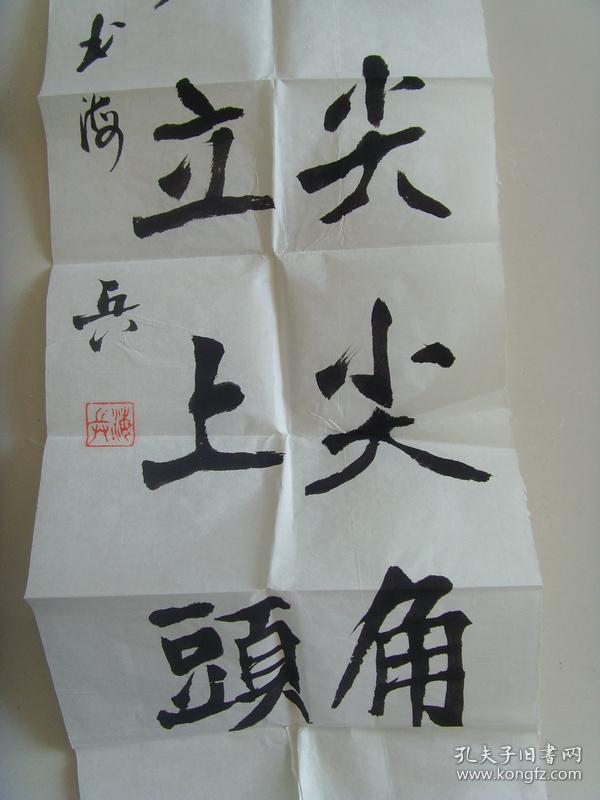 尖尖角
立上頭
书海兵
海兵
孔夫子旧書网
www.kongfz.com